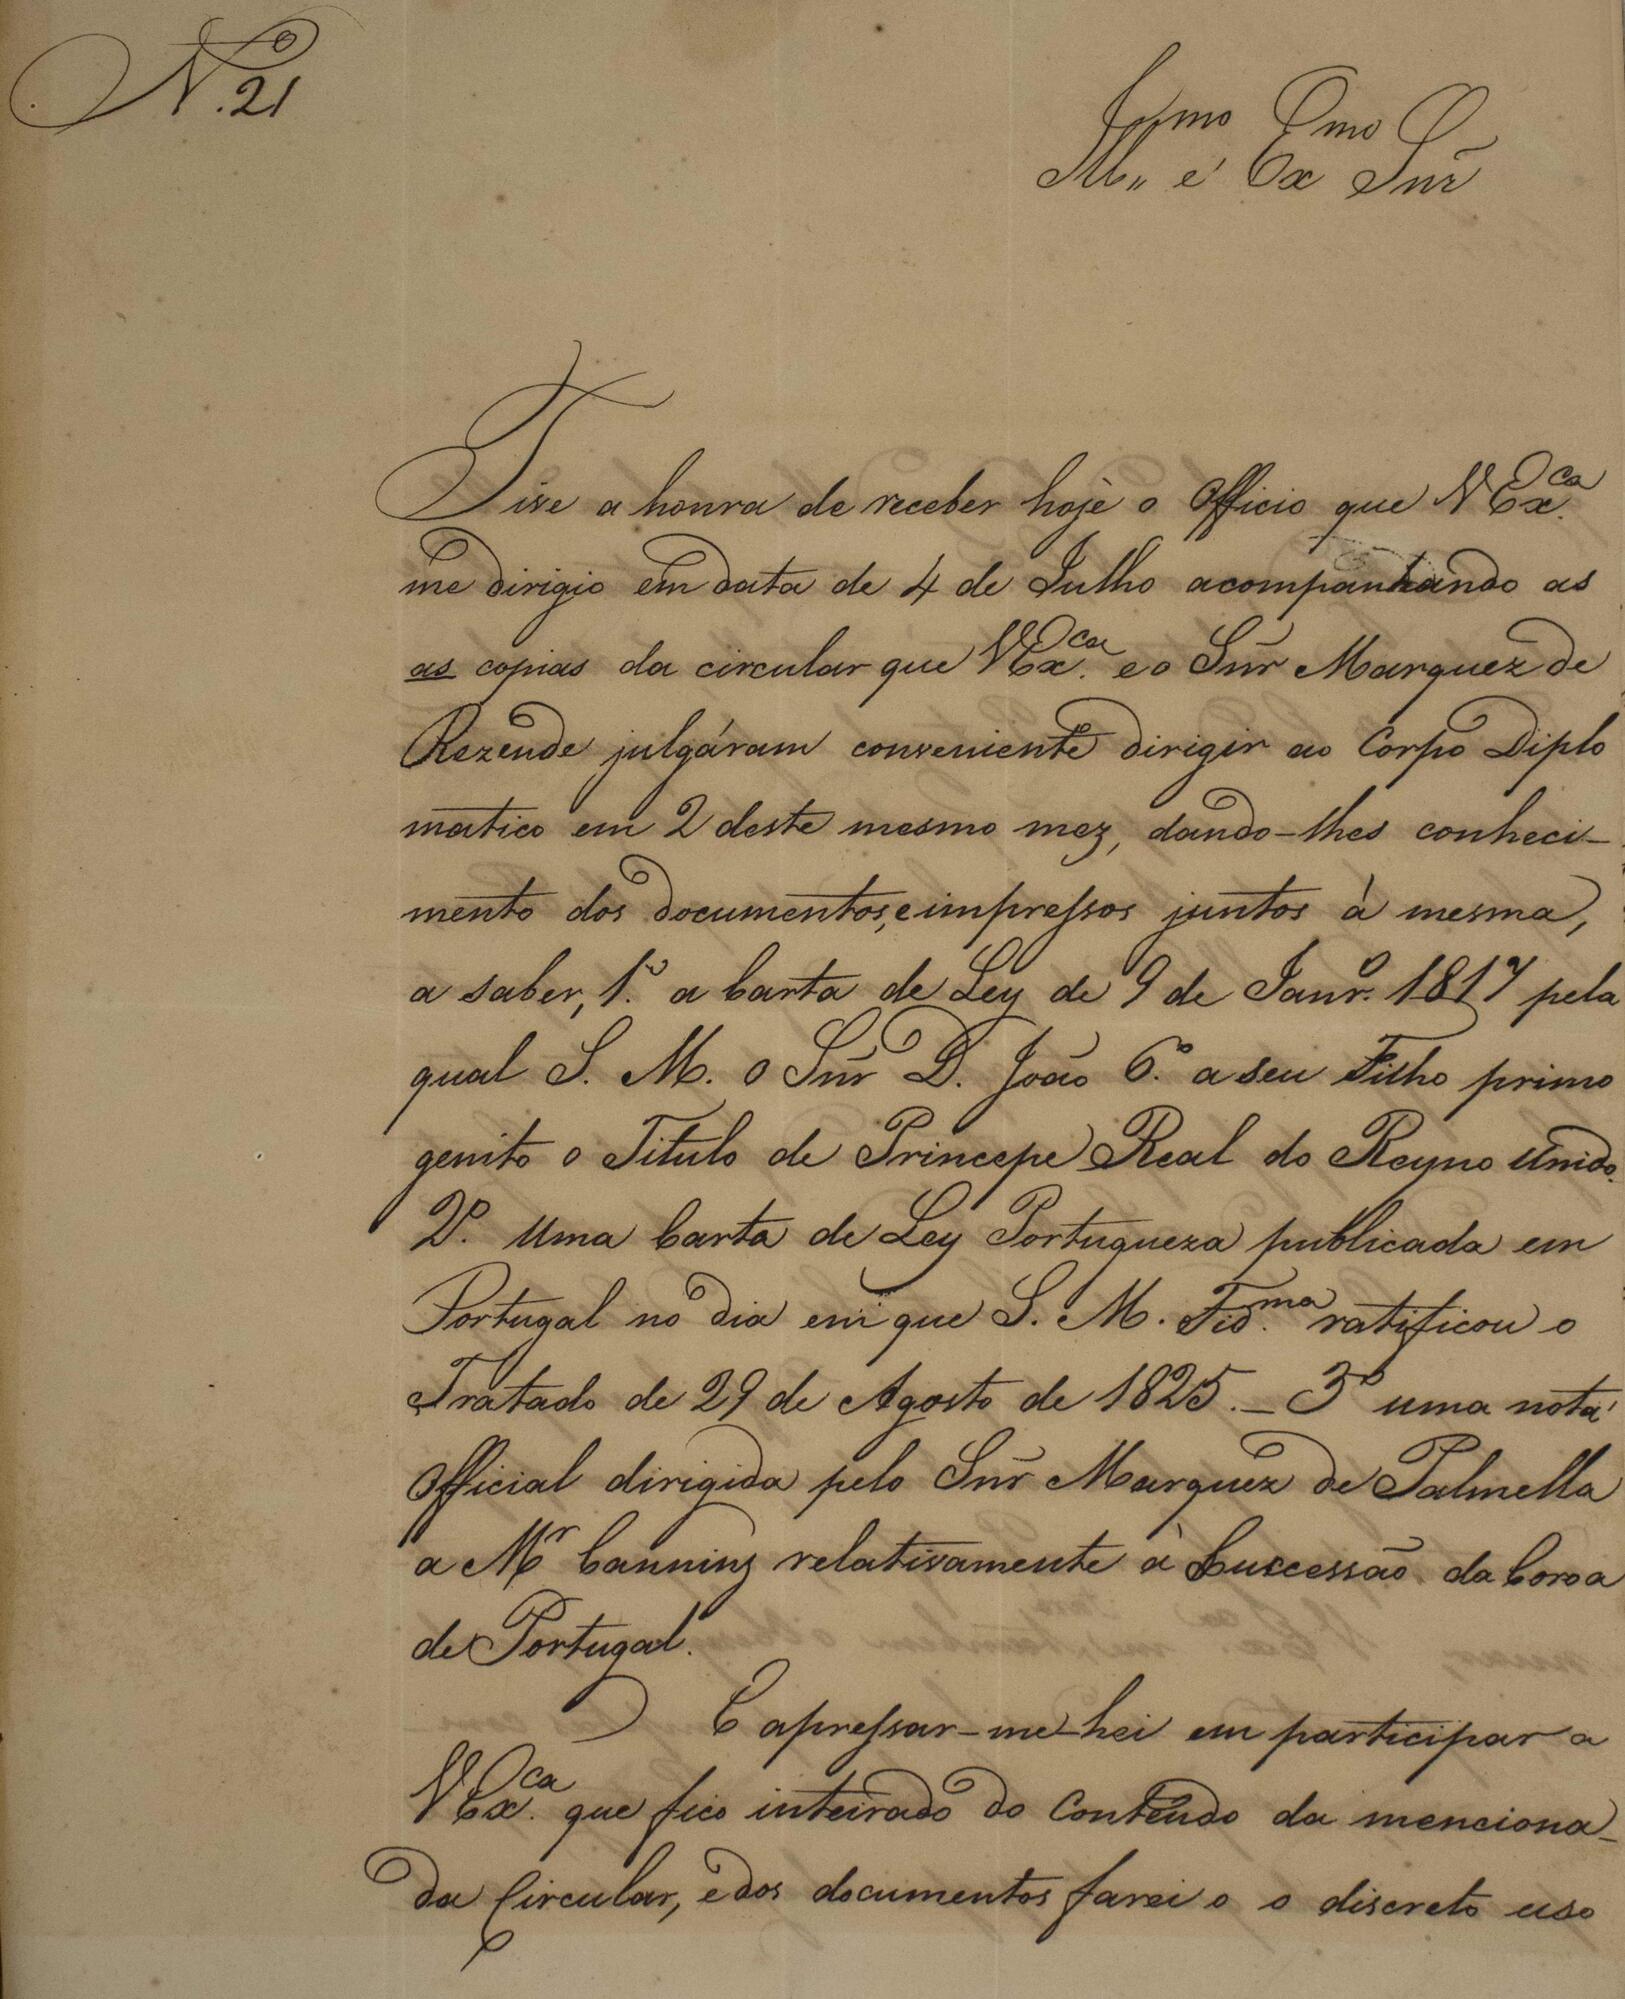 N.º 21
Ill.mo e Ex.mo Snr̃
Tive a honra de receber hoje o Officio que V Ex.ca
me dirigio em data de 4 de Julho acompanhando as
as copias da circular que V Ex.ca e o Snr̃ Marquez de
Rezende julgáram conveniente dirigir ao Corpo Diplo
matico em 2 deste mesmo mez, dando-lhes conheci-
mento dos documentos, e impressos juntos á mesma,
a saber, 1.º a Carta de Ley de 9 de Janr.º 1817 pela
qual S. M. o Snr̃ D. João 6.º a seu Filho primo
genito o Titulo de Principe Real do Reyno Unido.
2.º Uma Carta de Ley Portugueza publicada em
Portugal no dia em que S. M. Fid.ma ratificou o
Tratado de 29 de Agosto de 1825. _ 3º uma nota
Official dirigida pelo Snr̃ Marquez de Palmella
a Mr Canning relativamente á Successão da Coroa
de Portugal.
E apressar-me-hei em participar a
V Ex.ca que fico inteirado do Contendo da menciona-
da Circular, e dos documentos farei o o discreto uso